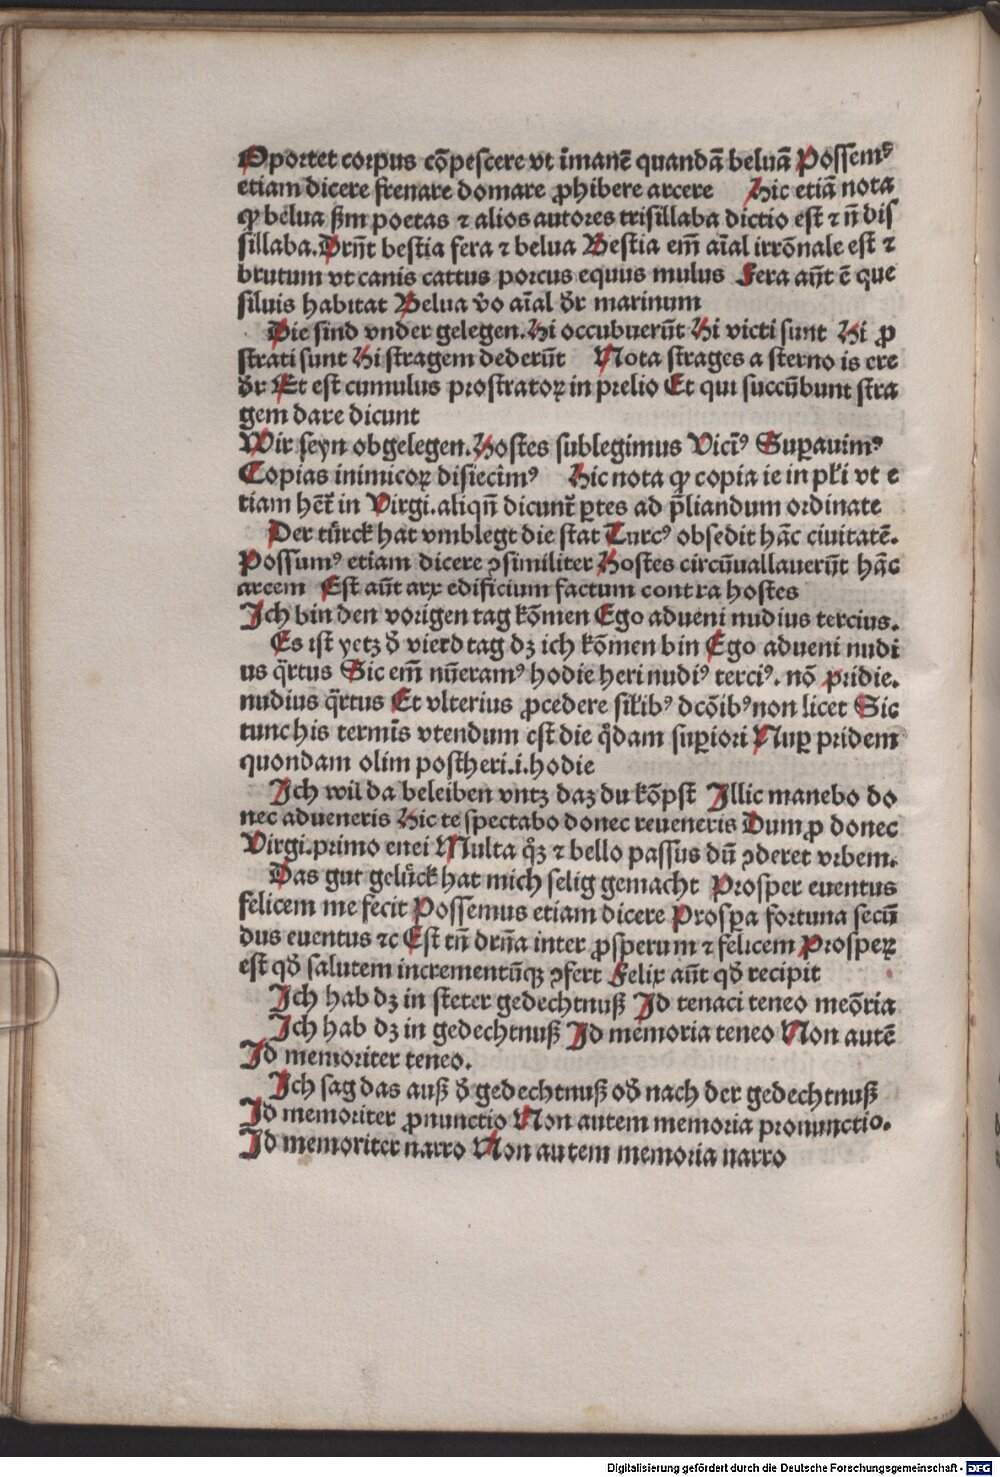 Oportet corpus cōpescere vt īmanē quandā beluā Possemꝰ
etiam dicere frenare domare ꝓhibere arcere Hic etiā nota
ꝙ belua ẜm poetas ⁊ alios autores trisillaba dictio est ⁊ nō dis
sillaba. Drn̄t bestia fera ⁊ belua Bestia em̄ aīal irrōnale est ⁊
brutum vt canis cattus porcus equus mulus Fera aūt ē que
siluis habitat Belua v̄o aīal dr̄ marinum
Die sind vnder gelegen. Hi occubuerūt Hi victi sunt Hi ꝓ
strati sunt Hi stragem dederūt Nota strages a sterno is ere
dr̄ Et est cumulus prostratoꝝ in prelio Et qui succūbunt stra
gem dare dicunt
Wir seyn obgelegen. Hostes sublegimus Vicīꝰ Suꝑauimꝰ
Copias inimicoꝝ disiecimꝰ Hic nota ꝙ copia ie in pl̄i vt e
tiam hēt̄ in Virgi. aliqn̄ dicunt̄ ꝑtes ad p̄liandum ordinate
Der tu̎rck hat vmblegt die stat Turcꝰ obsedit hāc ciuitatē.
Possumꝰ etiam dicere ꝯsimiliter Hostes circūuallauerūt hāc
arcem Est aūt arx edificium factum contra hostes
Ich bin den vorigen tag kōmen Ego adueni nudius tercius.
Es ist yetz d̄ vierd tag dz ich kōmen bin Ego adueni nudi
us q̄rtus Sic em̄ nūeramꝰ hodie heri nudiꝰ terciꝰ. nō pridie.
nudius q̄rtus Et vlterius ꝓcedere sil̄ibꝰ dcōibꝰ non licet Sic
tunc his termīs vtendum est die q̄dam suꝑiori Nuꝑ pridem
quondam olim postheri .i. hodie
Ich wil da beleiben vntz daz du kōpst Illic manebo do
nec adueneris Hic te spectabo donec reueneris Dum ꝓ donec
Virgi. primo enei Multa qͦꝫ ⁊ bello passus dū ꝯderet vrbem.
Das gut gelu̎ck hat mich selig gemacht Prosper euentus
felicem me fecit Possemus etiam dicere Prosꝑa fortuna secū
dus euentus ⁊c Est tn̄ drn̄a inter ꝓsperum ⁊ felicem Prosperꝝ
est qd̄ salutem incrementūqꝫ ꝯfert Felix aūt qd̄ recipit
Ich hab dz in steter gedechtnuß Id tenaci teneo meōria
Ich hab dz in gedechtnuß Id memoria teneo Non autē
Id memoriter teneo.
Ich sag das auß d̄ gedechtnuß od̄ nach der gedechtnuß
Id memoriter ꝓnunctio Non autem memoria pronunctio.
Id memoriter narro Non autem memoria narro
Digitalisierung gefördert durch die Deutsche Forschungsgemeinschaft - DFG